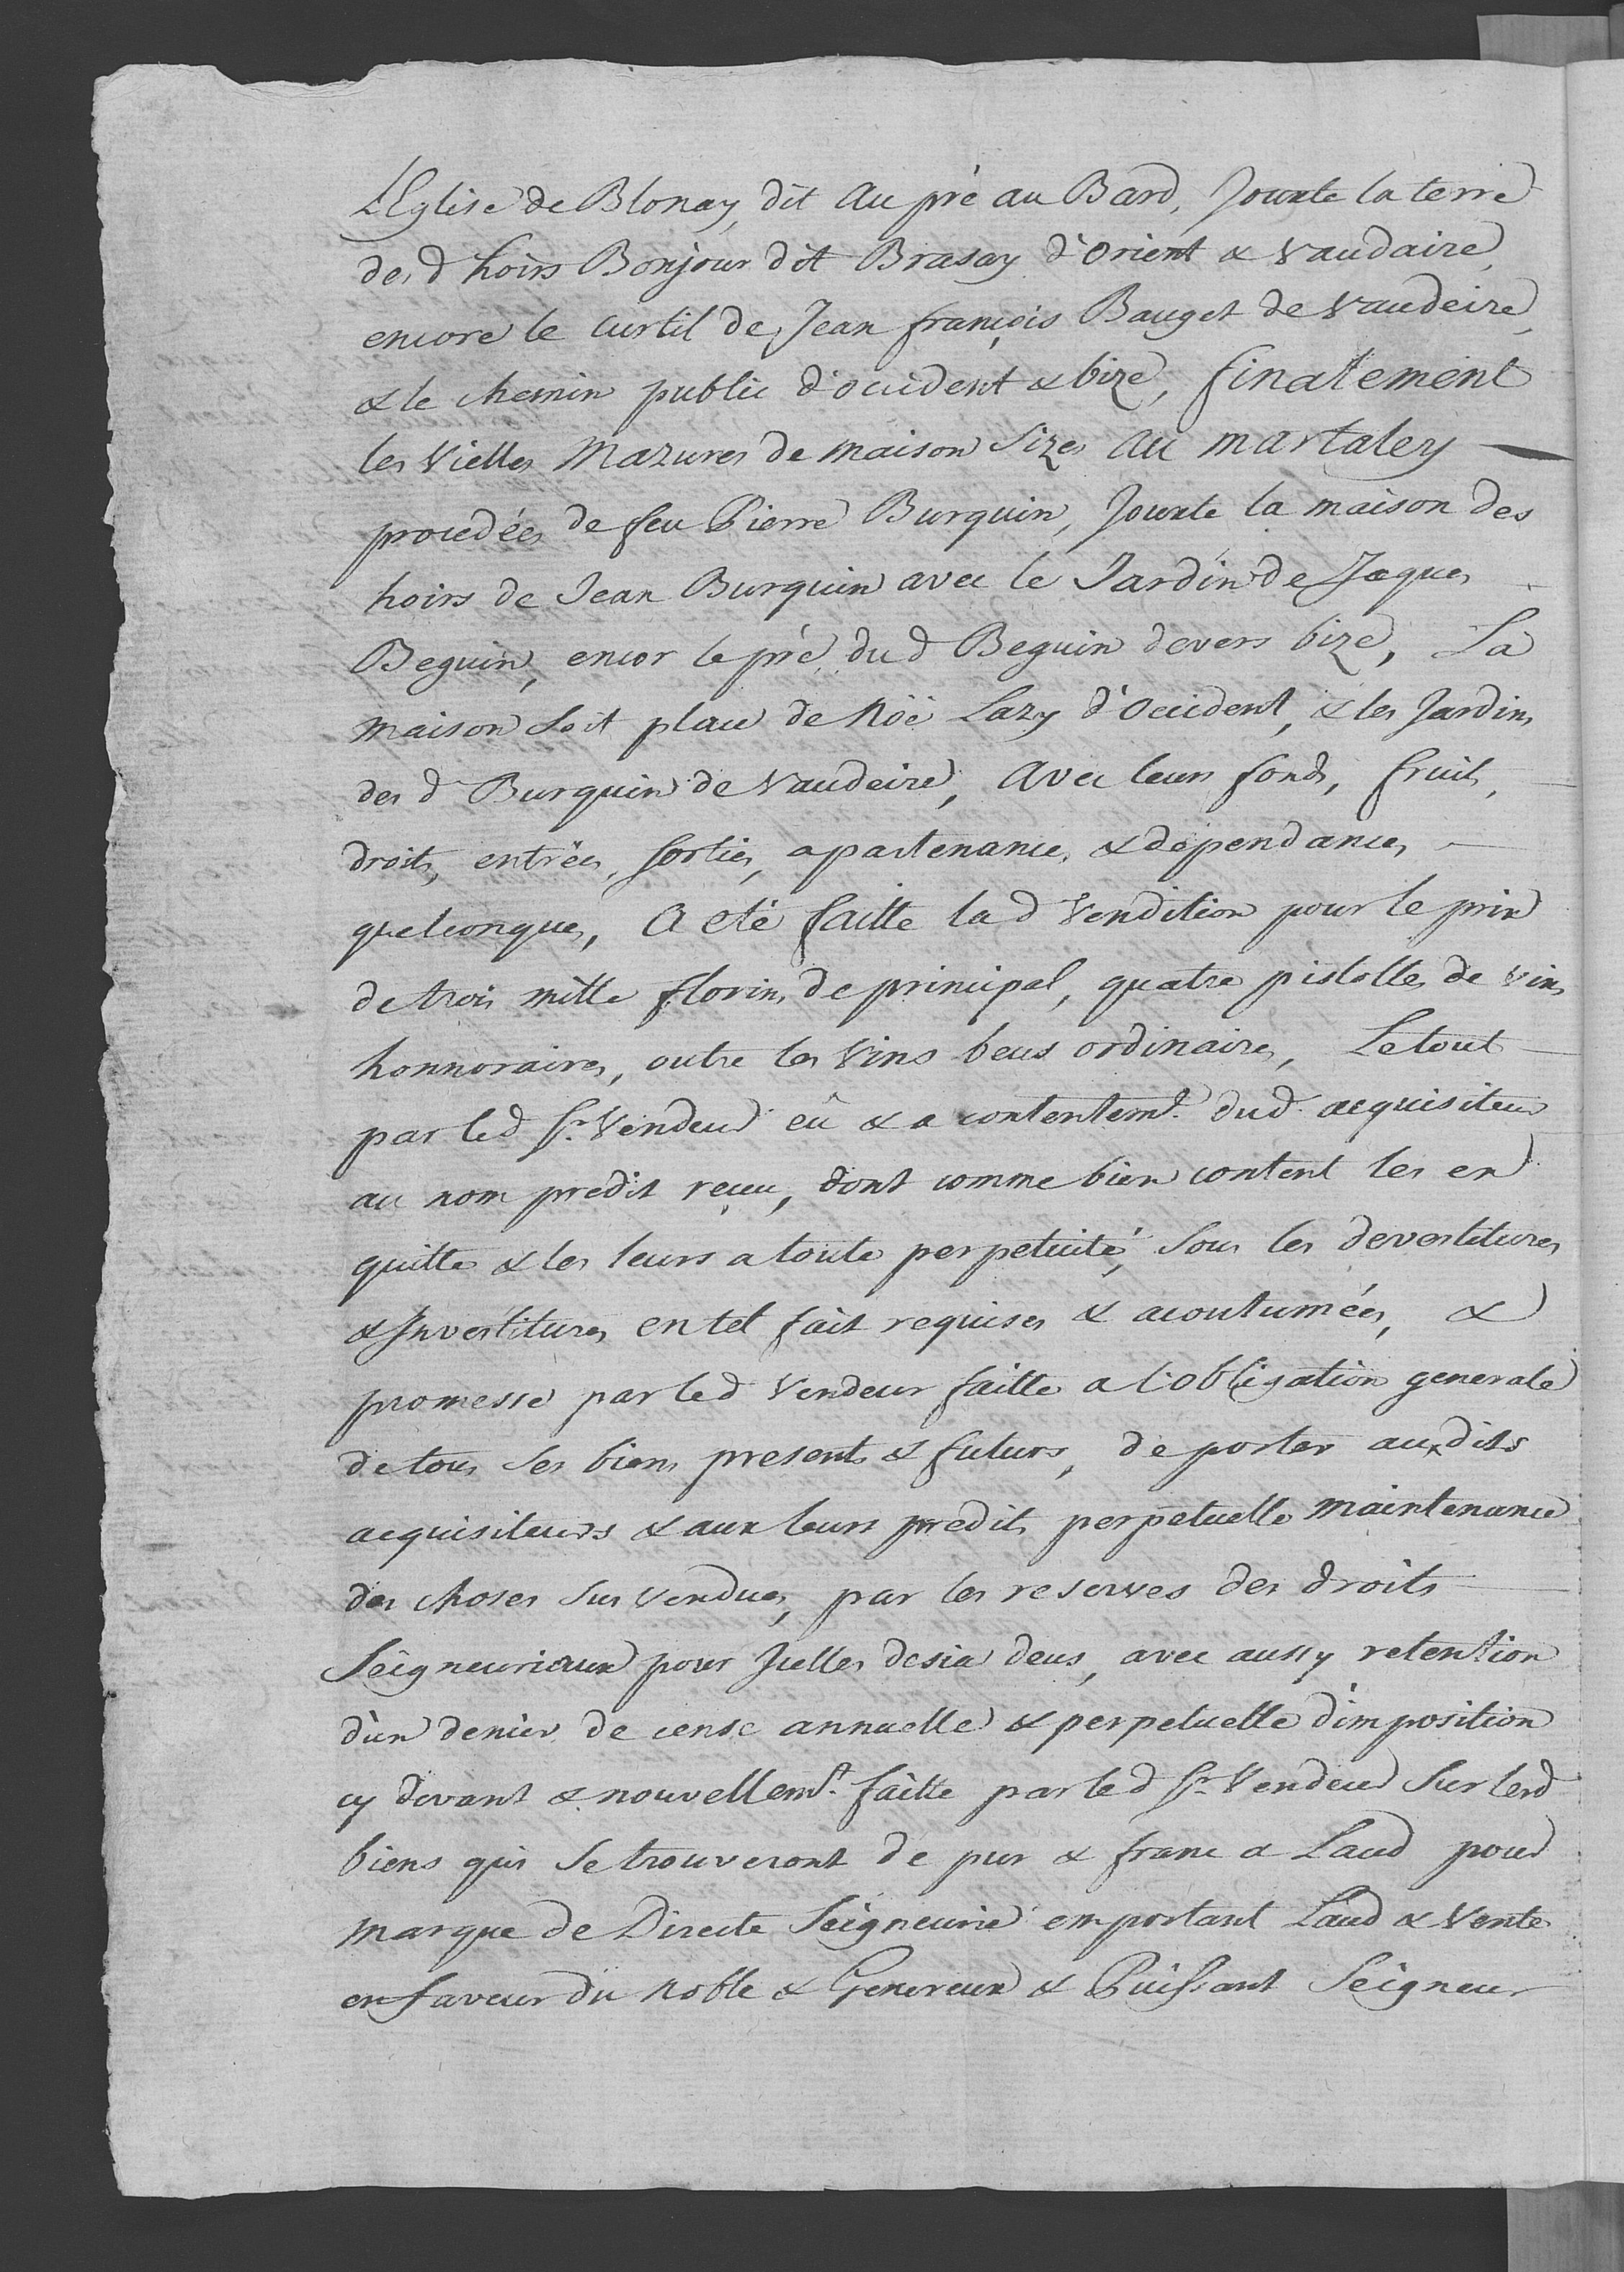 L'Eglise de Blonay, dit Au pré au Bard, Jouxte la terre
des d hoirs Bonjour dit Brasay d'Orient & Vaudaire,
encore le curtil de Jean françois Bauget de Vaudeire,
& le chemin public d'occident & bize, finalement
les Vielles Mazures de maison Sizes au martaley
procedées de feu Pierre Burquin, Jouxte la maison des
hoirs de Jean Burquin avec le Jardin de Jaques
Beguin, encor le pré du d Beguin devers bize, La
maison Soit place de Noé Lazy d'Occident, & les Jardins
des d Burquin de Vaudeire, Avec leurs fonds, fruits,
droits, entrées, sorties, apartenances & dépendances
quelconques, A eté faitte lad Vendition pour le prix
de trois mille florins de principal, quatre pistolles de vins
honnoraires, outre les Vins beus ordinaires, Le tout
par led Sr. Vendeur eû & a contentemt. dud. acquisiteur
au nom predit reçeu, dont comme bien content les en
quitte & les leurs a toute perpetuité, Sous les devestitures
& Investitures en tel fait requises & acoutumées, &
promesse par led Vendeur faitte a l'obligation generale
de tous ses biens presents & futurs, de porter aux dits
acquisiteurs & aux leurs predits perpetuelle maintenance
des choses sus vendues, par les reserves des droits
Seigneuriaux pour Icelles desia deus, avec aussy retention
d'un denier de cense annuelle & perpetuelle d'imposition
cy devant & nouvellemt. faitte par led Sr. Vendeur Sur lesd
biens qui Se trouveront de pur & franc a Laud pour
marque de Directe Seigneurie emportant Laud & Vente
en faveur du Noble & Genereux & Puissant Seigneur